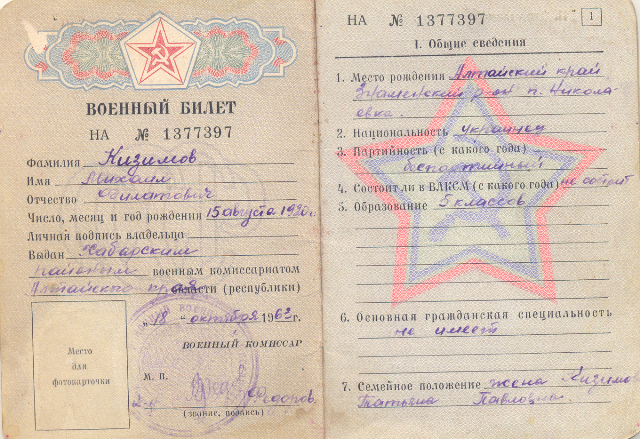 ВОЕННЫЙ БИЛЕТ
НА № 1377397
Фамилия Кизимов
Имя Михаил
Отчество Филатович
Число, месяц и год рождения 15 августа 1920 г.
Личная подпись владельца
Выдан Хабарским
районным военным комиссариатом
Алтайского края области (республики)
"18" октября 1963 г.
ВОЕННЫЙ КОМИССАР
Место
для
фотокарточки
М. П.
Федоров
(звание, подпись)
НА № 1377397 1
I. Общие сведения
1. Место рождения Алтайский край
Знаменский р-он п. Никола
евка.
2. Национальность украинец
3. Партийность (с какого года)
беспартийный
4. Состоит ли в ВЛКСМ (с какого года) не состоит
5. Образование 5 классов
6. Основная гражданская специальность
не имеет
7. Семейное положение жена Кизимова
Татьяна Павловна